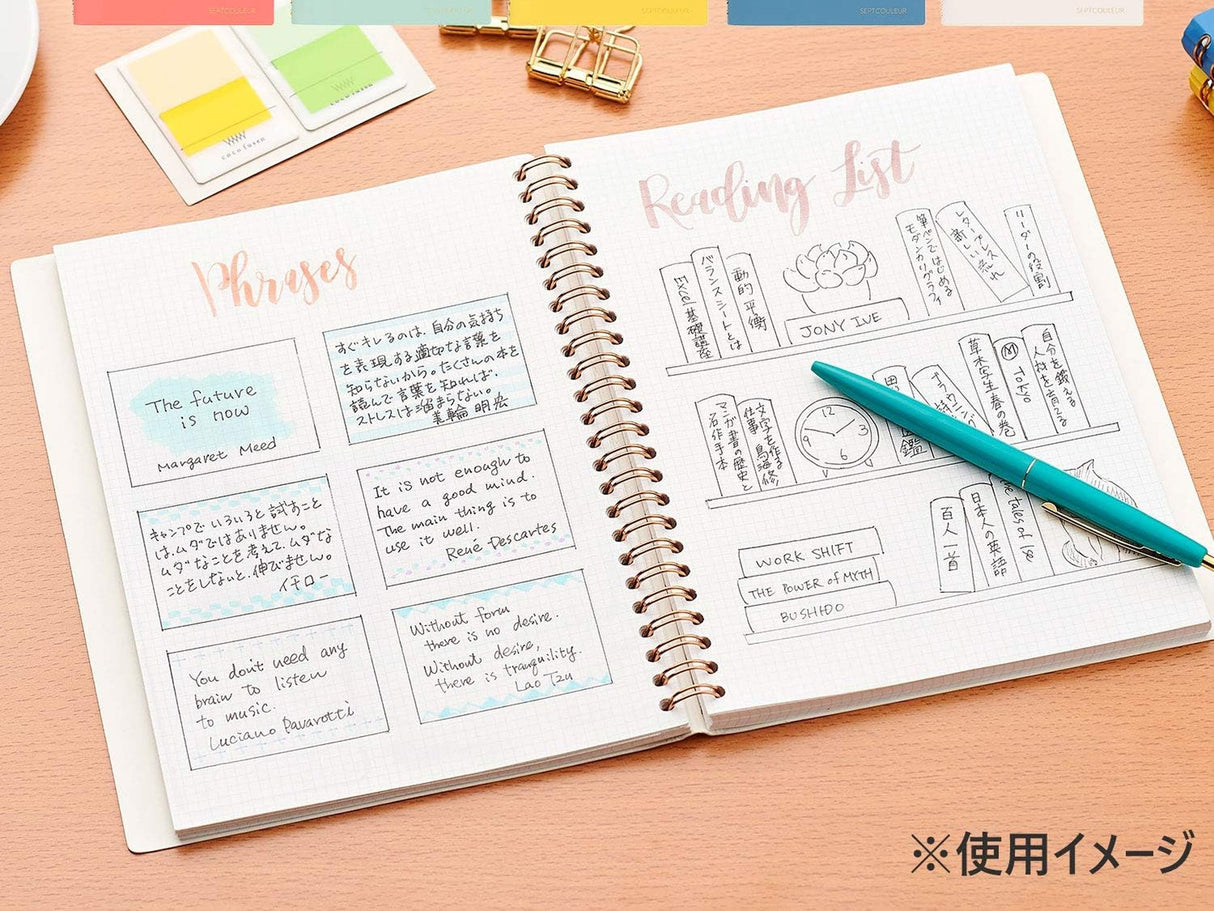 SEPTCOULEUR
SEPTCOULEUR
SEPTCOULEUR
SEPTCOULEUR
SEPTCOULEUR
coco fusen
coco fusen
Phrases
The future
is now
Margaret Meed
すぐキレるのは、自分の気持ち
を表現する適切な言葉を
知らないから。たくさんの本を
読んで言葉を知れば、
ストレスは溜まらない。
美輪 明宏
キャンプでいろいろと試すこと
は、ムダではありません。
ムダなことを考えて、ムダな
ことをしないと、伸びません。
イチロー
It is not enough to
have a good mind.
The main thing is to
use it well.
René Descartes
You don't need any
brain to listen
to music.
Luciano Pavarotti
Without form
there is no desire.
Without desire,
there is tranquility.
Lao Tzu
Reading List
Excel 基礎講座
バランスシートとは
動的 平衡
JONY IVE
筆ペンではじめる
モダンカリグラフィ
レタープレス
新しい流れ
リーダーの役割
マンガ書の歴史と
名作手本
文字を作る
仕事 鳥海修
12
3
6
9
鑑
草木写生春の巻
TOKYO
自分を鍛える
人材を育てる
WORK SHIFT
THE POWER of MYTH
BUSHIDO
百人一首
日本人の英語
tales of
※使用イメージ